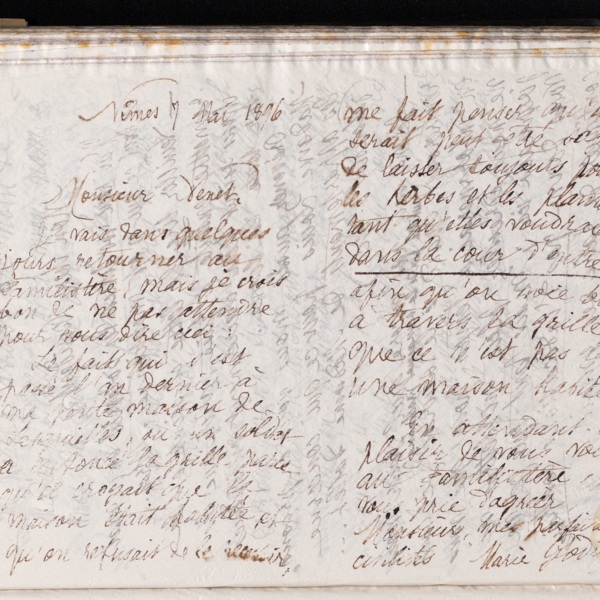 Nîmes 7 Mai 1896
Monsieur Denet
vais dans quelques
jours retourner au
Familistère, mais je crois
bon de ne pas attendre
pour vous dire ceci :
Le fait qui s'est
passé l'an dernier à
ma petite maison de
Lesquielles, où un soldat
a défoncé la grille parce
qu'il croyait que la
maison était habitée et
qu'on refusait de le recevoir,
me fait penser qu'il
serait peut-être
de laisser toujours
les herbes et les plantes
tant qu'elles voudraient
dans la cour d'entrée
afin qu'on voie
à travers la grille
que ce n'est pas
une maison habitée
En attendant
plaisir de vous
au Familistère
vous prie d'agréer
Monsieur, mes
civilités Marie